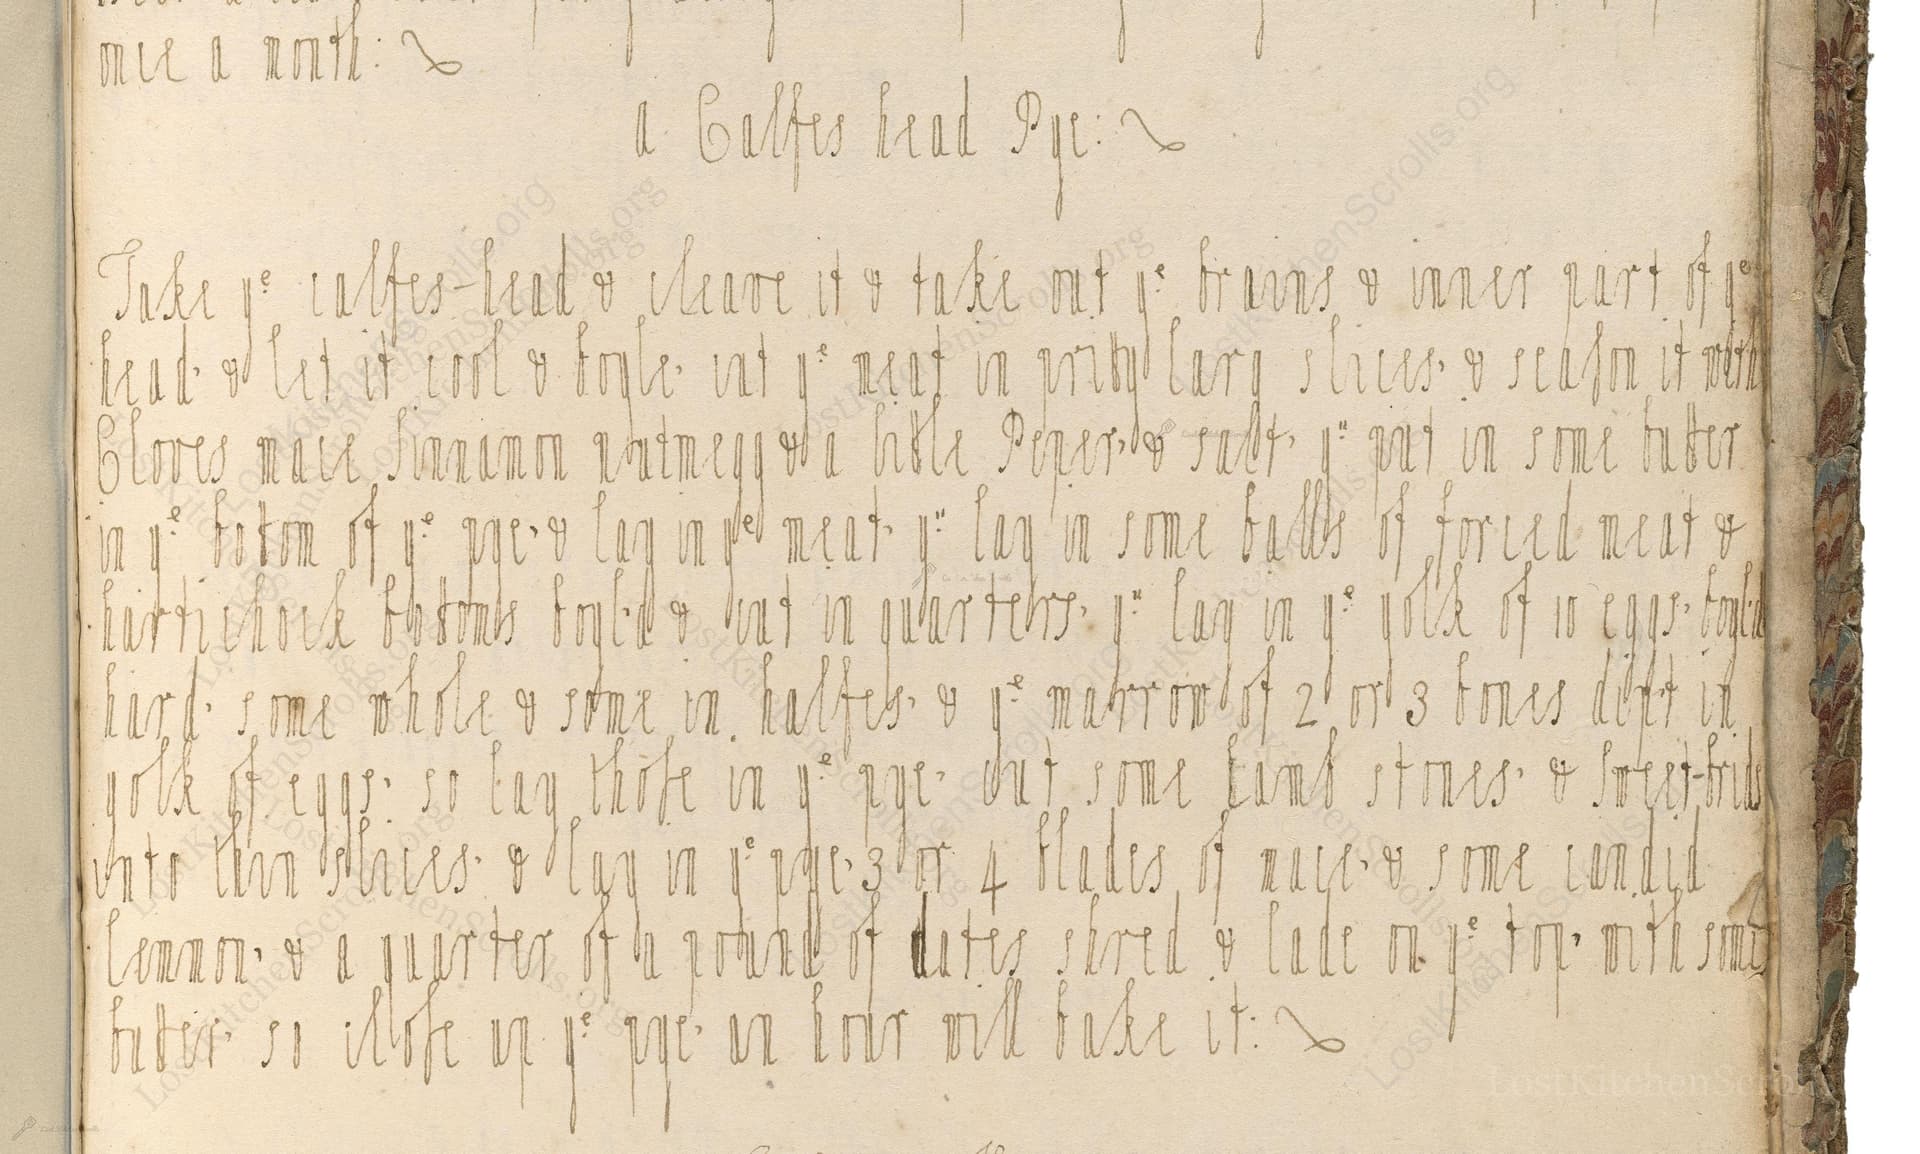 once a month:
a Calfes head Pye:
Take yᵉ calfes-head & cleave it & take out yᵉ brains & inner part of yᵉ
head, & let it cool & boyle, cut yᵉ meat in pritty larg slices, & season it with
Cloves mace sinnamon nutmegg & a little Peper, & salt, yⁿ put in some butter
in yᵉ bottom of yᵉ pye, & lay in yᵉ meat, yⁿ lay in some balls of forced meat &
hartichock bottoms boyl'd & cut in quarters, yⁿ lay in yᵉ yolk of 10 eggs, boyl'd
hard, some whole & some in halfes, & yᵉ marrow of 2 or 3 bones dipt in
yolk of eggs, so lay those in yᵉ pye, cut some Lamb stones, & sweet-brids
into thin slices, & lay in yᵉ pye, 3 or 4 blades of mace, & some candid
Lemmon, & a quarter of a pound of dates shred & lade on yᵉ top, with some
butter, so close up yᵉ pye, an hour will bake it:
LostKitchenScrolls.org